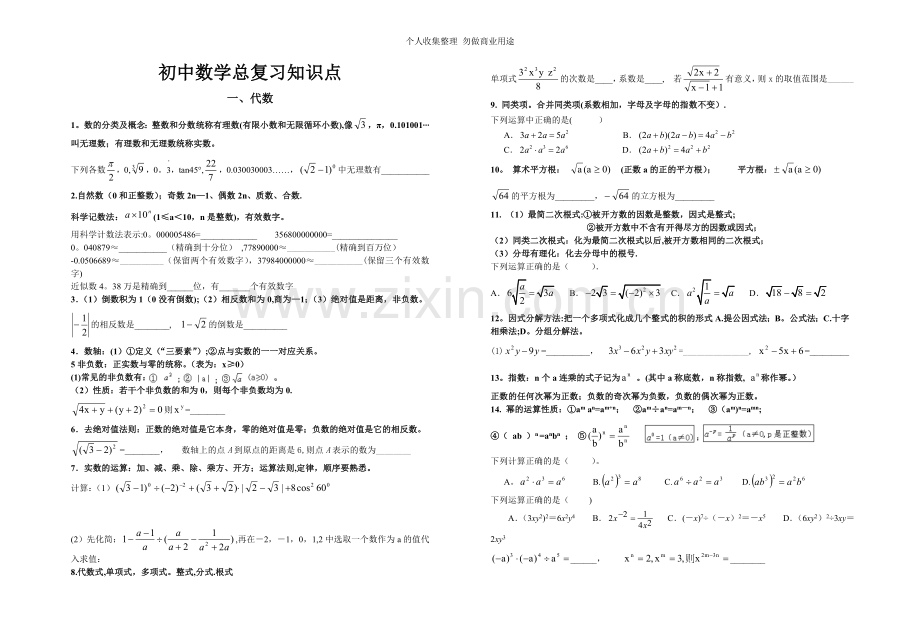 个人收集整理 勿做商业用途
初中数学总复习知识点
一、代数
1。数的分类及概念：整数和分数统称有理数(有限小数和无限循环小数),像√3，π，0.101001···
叫无理数；有理数和无理数统称实数。
下列各数π/2，0,³√9，0。3，tan45°,22/7，0.030030003……，(√2-1)⁰中无理数有
2.自然数（0和正整数）；奇数2n—1、偶数2n、质数、合数.
科学记数法：a×10ⁿ(1≤a＜10，n是整数)，有效数字。
用科学计数法表示:0。000005486= 356800000000=
0。040879≈（精确到十分位） ,77890000≈（精确到百万位）
-0.0506689≈（保留两个有效数字），37984000000≈（保留三个有效数
字)
近似数4。38万是精确到位，有个有效数字
3.（1）倒数积为1（0没有倒数);（2）相反数和为0,商为—1;（3）绝对值是距离，非负数。
|-1/2|的相反数是，1-√2的倒数是
4．数轴：(1）①定义（“三要素”）;②点与实数的一一对应关系。
5非负数：正实数与零的统称。（表为：x≥0）
(1)常见的非负数有：① a²；② |a|；③ √a (a≥0) 。
（2）性质：若干个非负数的和为0，则每个非负数均为0.
√(4x+y)+(y+2)²=0则xʸ=
6．去绝对值法则：正数的绝对值是它本身，零的绝对值是零；负数的绝对值是它的相反数。
√(√3-2)²=， 数轴上的点A到原点的距离是6,则点A表示的数为
7．实数的运算：加、减、乘、除、乘方、开方；运算法则,定律，顺序要熟悉。
计算：（1）(√3-1)⁰÷(-2)⁻²+(√3+√2)·|√2-√3|+8cos²60⁰
(2）先化简：1-(a-1)/a÷(a/(a+2)-1/(a²+2a)),再在-2，-1，0，1,2中选取一个数作为a的值代
入求值：
8.代数式,单项式，多项式。整式,分式.根式
单项式3²x³y z²/8的次数是,系数是， 若√(2x+2)/(√(x-1)+1)有意义，则x的取值范围是
9. 同类项。合并同类项(系数相加，字母及字母的指数不变）.
下列运算中正确的是( )
A．3a+2a=5a² B．(2a+b)(2a-b)=4a²-b²
C．2a²·a³=2a⁶ D．(2a+b)²=4a²+b²
10。 算术平方根： √a(a≥0) (正数a的正的平方根）； 平方根：±√a(a≥0)
√64的平方根为，-√64的立方根为
11. （1）最简二次根式:①被开方数的因数是整数，因式是整式;
②被开方数中不含有开得尽方的因数或因式；
（2）同类二次根式：化为最简二次根式以后,被开方数相同的二次根式；
（3）分母有理化：化去分母中的根号.
下列运算正确的是（ ）.
A．6√(a/2)=√3a B．-2√3=√((-2)²×3) C．a²√(1/a)=√a D．√18-√8=√2
12。因式分解方法:把一个多项式化成几个整式的积的形式A.提公因式法；B。公式法；C.十字
相乘法;D。分组分解法。
⑴ x²y-9y=， 3x³-6x²y+3xy²=，x²-5x+6=
13。指数：n个a连乘的式子记为aⁿ 。(其中a称底数，n称指数, aⁿ称作幂。）
正数的任何次幂为正数；负数的奇次幂为负数，负数的偶次幂为正数。
14. 幂的运算性质：①aᵐ aⁿ=aᵐ⁺ⁿ； ②aᵐ÷aⁿ=aᵐ⁻ⁿ； ③（aᵐ)ⁿ=aᵐⁿ;
④( ab )ⁿ=aⁿbⁿ ；⑤(a/b)ⁿ=aⁿ/bⁿ a⁰=1(a≠0)；a⁻ᵖ=1/aᵖ(a≠0,p是正整数)
下列计算正确的是（ ）。
A。a²·a³=a⁶ B.(a²)³=a⁸ C.a⁶÷a²=a³ D.(ab³)²=a²b⁶
下列运算正确的是（ ）
A．（3xy²)²=6x²y⁴ B．2x⁻²=1/4x² C．(－x)⁷÷（－x）²＝－x⁵ D．（6xy²）²÷3xy＝
2xy³
(-a)³·(-a)⁴÷a⁵=， xⁿ=2,xᵐ=3,则x²ᵐ⁻³ⁿ=
www.zixin.com.cn